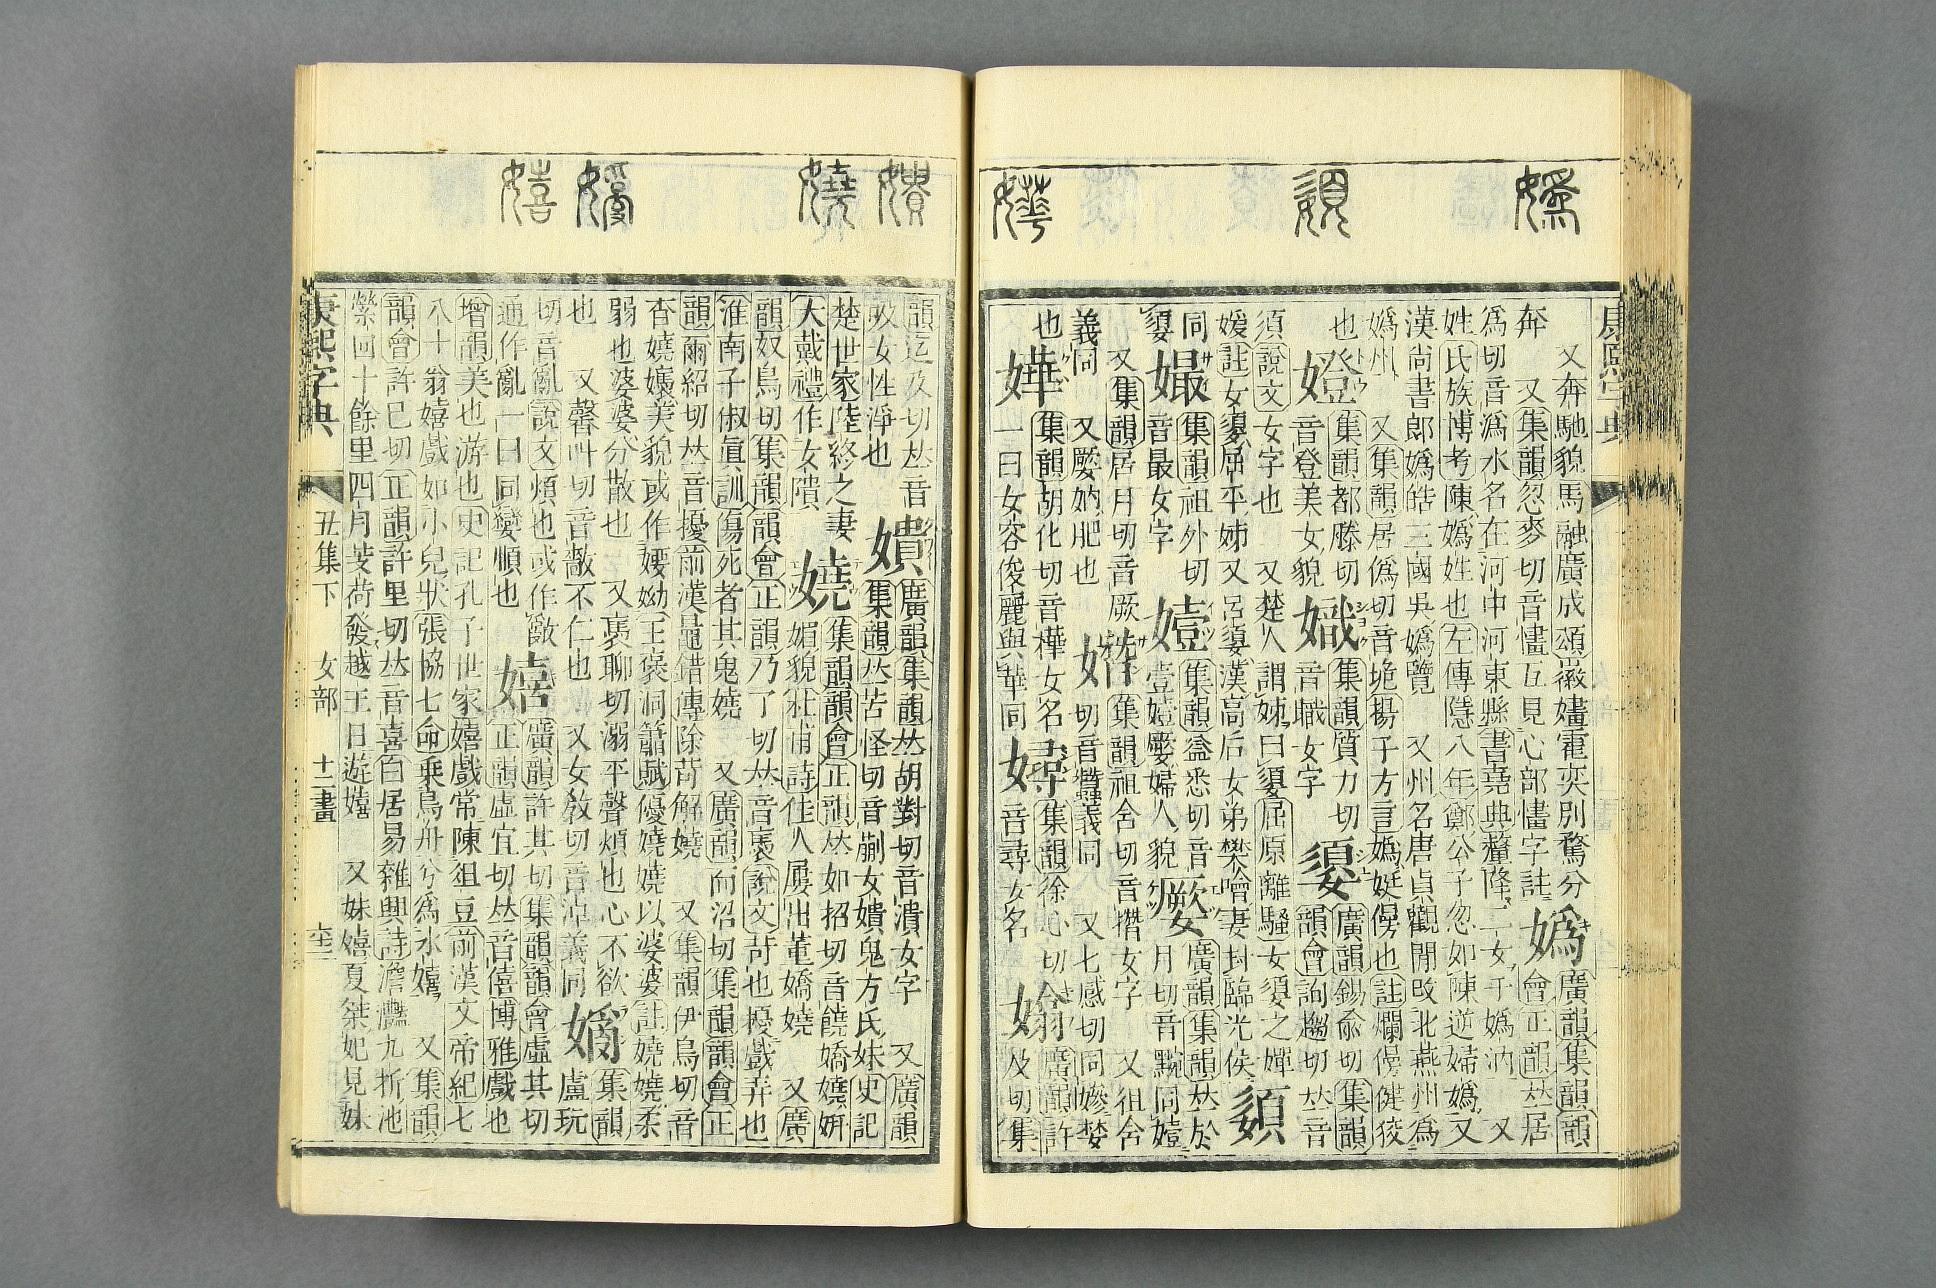 嬀
嬃
嬅
康熙字典
又奔馳貌馬融廣成頌徽嫿霍奕別騖分
奔
又集韻忽麥切音㦎互見心部㦎字註
嬀
廣韻集韻韻會正韻𠀤居
爲切音潙水名在河中河東縣書堯典釐降二女于嬀汭 又
姓氏族博考陳嬀姓也左傳隱八年鄭公子忽如陳逆婦嬀又
漢尚書郎嬀皓三國吳嬀覽 又州名唐貞觀閒改北燕州爲
嬀州 又集韻居僞切音垝揚子方言嬀娗僈也註爛僈健狡
也
嬁
集韻都騰切音登美女貌
集韻質力切音職女字
嬃
廣韻錫兪切集韻韻會詢趨切𠀤音
須說文女字也 又楚人謂姊曰嬃屈原離騷女須之嬋
媛註女嬃屈平姊又呂嬃漢高后女弟樊噲妻封臨光侯
同
嬃
集韻祖外切音最女字
集韻益悉切音壹嬄嬮婦人貌
廣韻集韻𠀤於月切音䵩同嬄
又集韻居月切音厥
集韻祖含切音簪女字 又徂含
切音蠶義同 又七感切同嫸婪
義同 又嬮妠肥也
也
嬅
集韻胡化切音樺女名
一曰女容俊麗與華同
集韻徐心切音尋女名
廣韻許及切集
嬇
嬈
嬉
韻迄及切𠀤音
吸女性淨也
嬇
廣韻集韻𠀤胡對切音潰女字 又廣韻
集韻𠀤苦怪切音蒯女嬇鬼方氏妹史記
楚世家陸終之妻
大戴禮作女隤
嬈
集韻韻會正韻𠀤如招切音饒嬌嬈妍
媚貌杜甫詩佳人屢出董嬌嬈 又廣
韻奴鳥切集韻韻會正韻乃了切𠀤音褭說文苛也擾戲弄也
淮南子俶眞訓傷死者其鬼嬈 又廣韻而沼切集韻韻會正
韻爾紹切𠀤音擾前漢鼂錯傳除苛解嬈 又集韻伊鳥切音
杳嬈孃美貌或作㜵㛂王褒洞簫賦優嬈嬈以婆婆註嬈嬈柔
弱也婆婆分散也 又裊聊切溺平聲煩也心不欲
也 又馨叫切音敽不仁也 又女敎切音淖義同
集韻盧玩
切音亂說文煩也或作敵
通作亂一曰同孌順也
嬉
廣韻許其切集韻韻會虛其切
正韻虛宜切𠀤音僖博雅戲也
增韻美也游也史記孔子世家嬉戲常陳俎豆前漢文帝紀七
八十翁嬉戲如小兒狀張協七命乗鳥舟兮爲水嬉 又集韻
韻會許已切正韻許里切𠀤音喜白居易雜興詩澹灩九折池
縈回十餘里四月芰荷發越王日遊嬉 又妹嬉夏桀妃見妹
康熙字典 丑集下 女部 十二畫